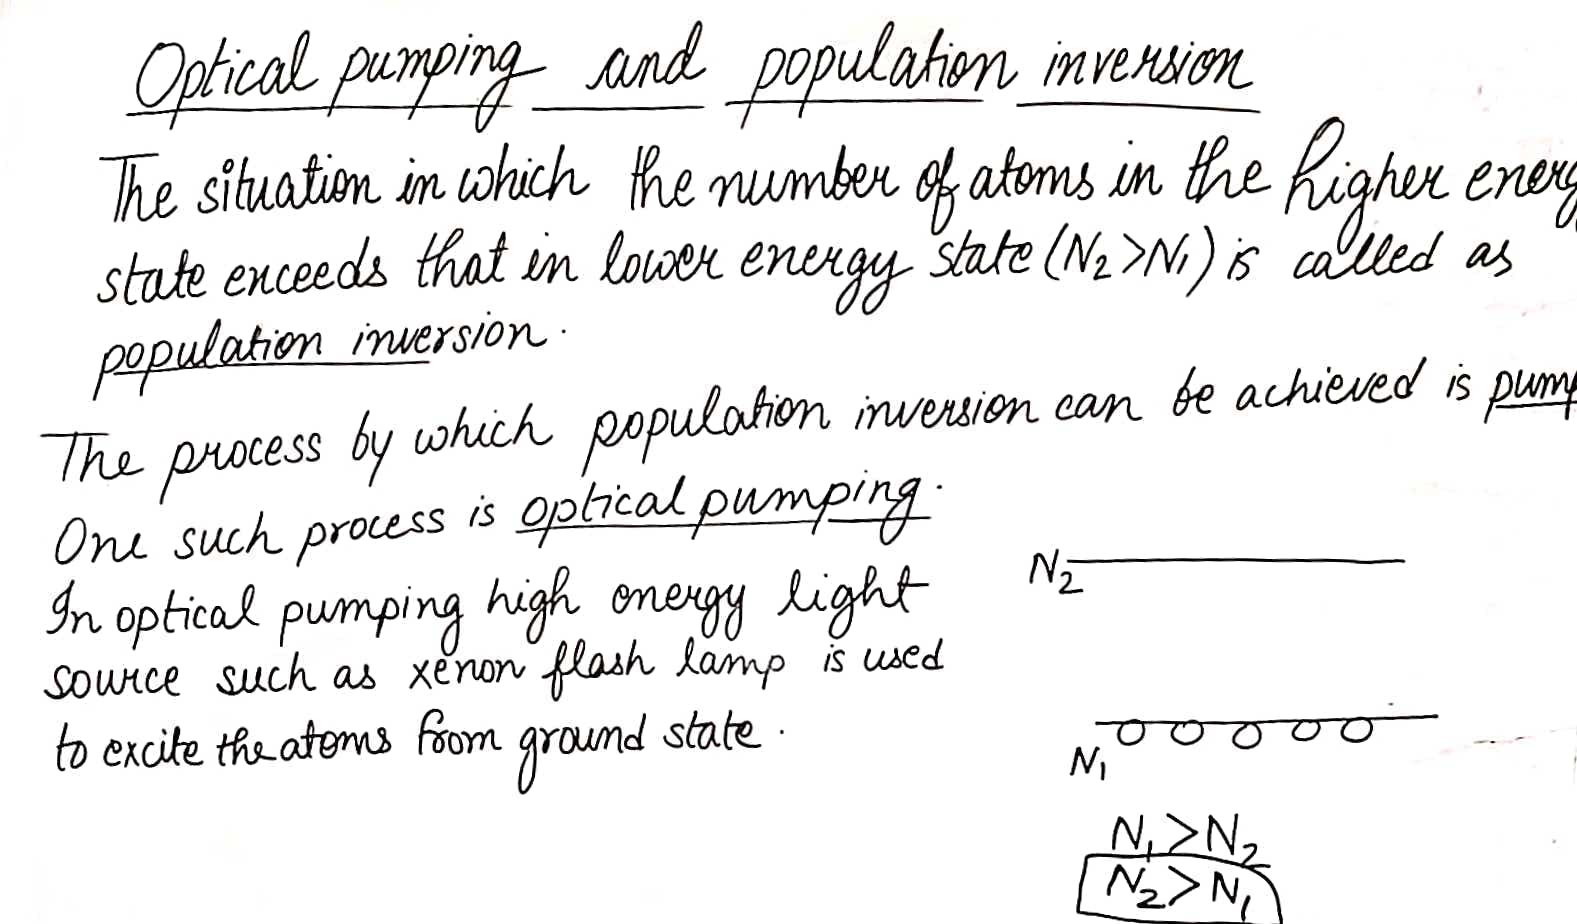 Optical pumping and population inversion
The situation in which the number of atoms in the higher energ
state exceeds that in lower energy state (N₂>N₁) is called as
population inversion.
The process by which population inversion can be achieved is pump
One such process is optical pumping.
In optical pumping high energy light
source such as xenon flash lamp is used
to excite the atoms from ground state.
N₂
N₁
N₁>N₂
N₂>N₁